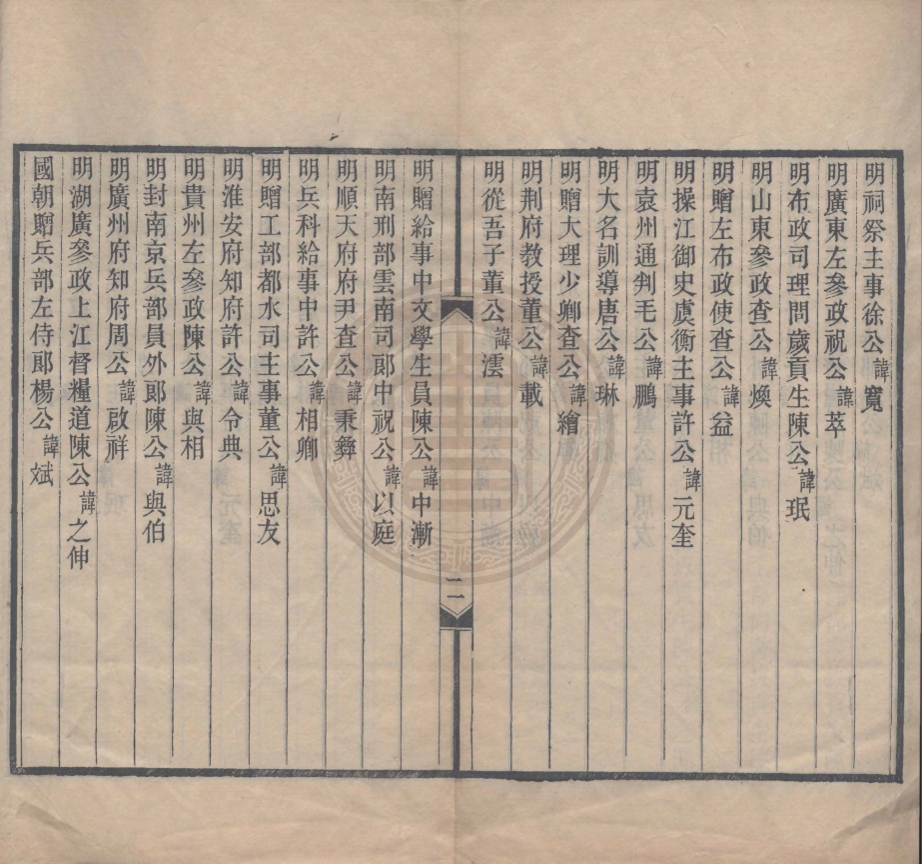 明祠祭主事徐公諱寬
明廣東左參政祝公諱萃
明布政司理問歲貢生陳公諱珉
明山東參政查公諱煥
明贈左布政使查公諱益
明操江御史虞衡主事許公諱元奎
明袁州通判毛公諱鵬
明大名訓導唐公諱琳
明贈大理少卿查公諱繪
明荆府教授董公諱載
明從吾子董公諱澐
二
明贈給事中文學生員陳公諱中漸
明南刑部雲南司郎中祝公諱以庭
明順天府府尹查公諱秉彝
明兵科給事中許公諱相卿
明贈工部都水司主事董公諱思友
明淮安府知府許公諱令典
明貴州左參政陳公諱與相
明封南京兵部員外郎陳公諱與伯
明廣州府知府周公諱啟祥
明湖廣參政上江督糧道陳公諱之伸
國朝贈兵部左侍郎楊公諱斌